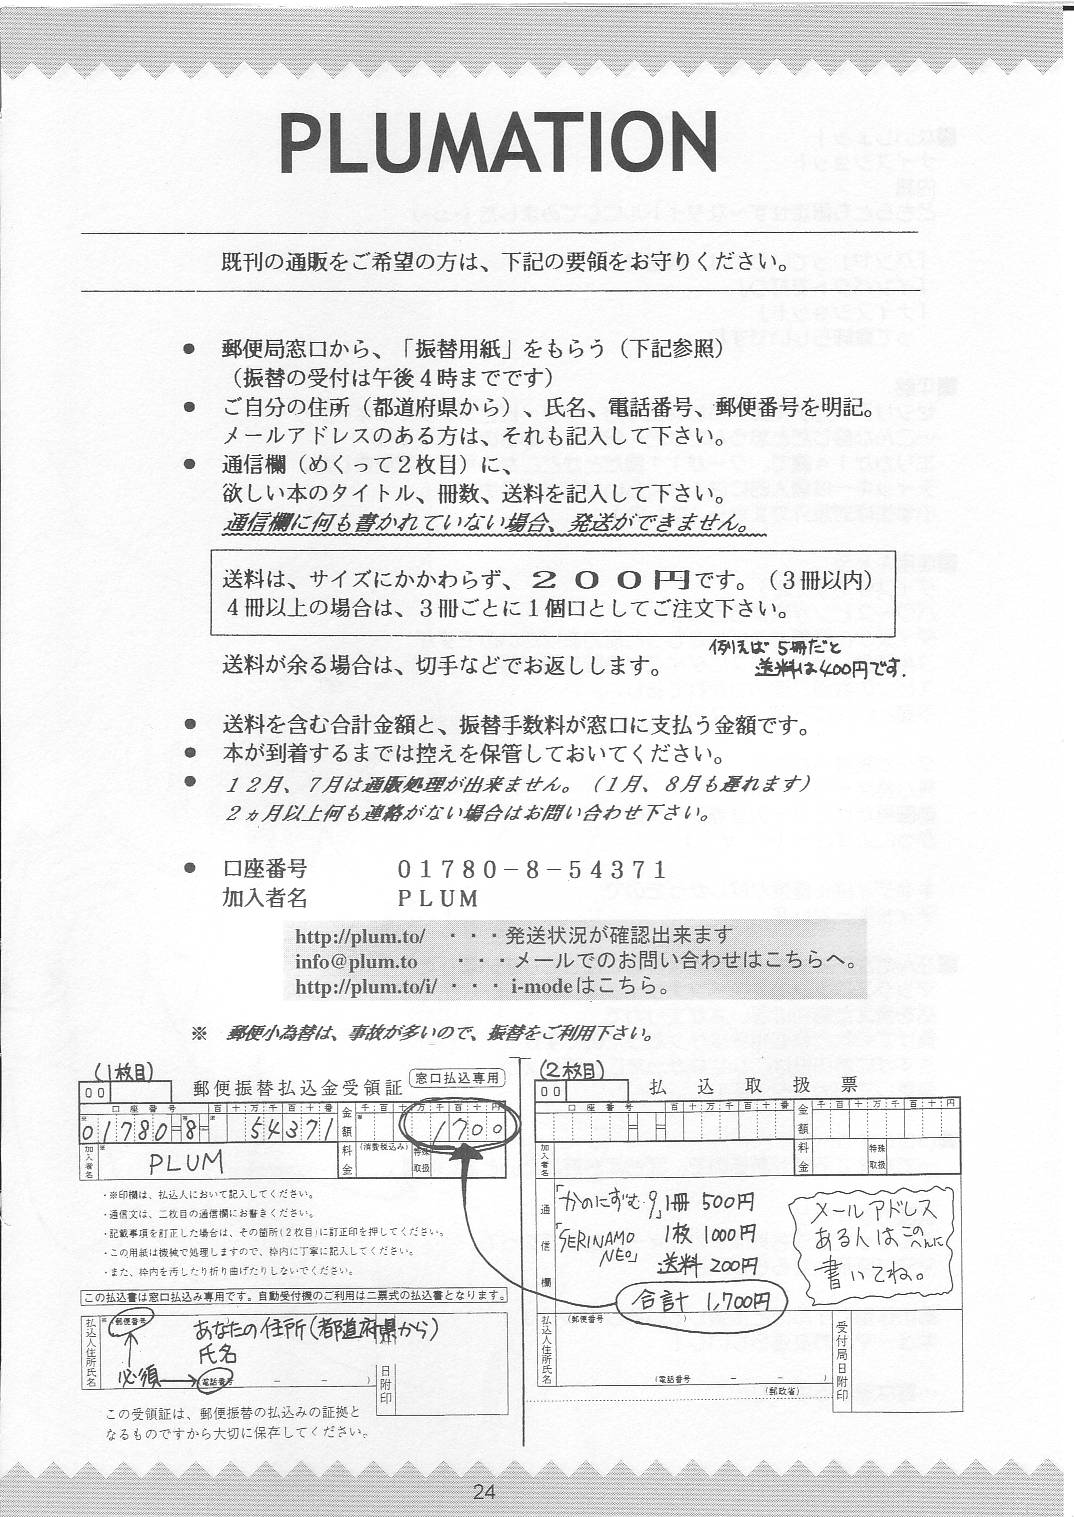 PLUMATION
既刊の通販をご希望の方は、下記の要領をお守りください。
● 郵便局窓口から、「振替用紙」をもらう（下記参照）
（振替の受付は午後４時までです）
● ご自分の住所（都道府県から）、氏名、電話番号、郵便番号を明記。
メールアドレスのある方は、それも記入して下さい。
● 通信欄（めくって２枚目）に、
欲しい本のタイトル、冊数、送料を記入して下さい。
通信欄に何も書かれていない場合、発送ができません。
送料は、サイズにかかわらず、２００円です。（３冊以内）
４冊以上の場合は、３冊ごとに１個口としてご注文下さい。
例えば 5冊だと
送料は400円です.
送料が余る場合は、切手などでお返しします。
● 送料を含む合計金額と、振替手数料が窓口に支払う金額です。
● 本が到着するまでは控えを保管しておいてください。
● １２月、７月は通販処理が出来ません。（１月、８月も遅れます）
２ヵ月以上何も連絡がない場合はお問い合わせ下さい。
● 口座番号 ０１７８０－８－５４３７１
加入者名 ＰＬＵＭ
http://plum.to/ ・・・発送状況が確認出来ます
info@plum.to ・・・メールでのお問い合わせはこちらへ。
http://plum.to/i/ ・・・ i-modeはこちら。
※ 郵便小為替は、事故が多いので、振替をご利用下さい。
(1枚目)
00 郵便振替払込金受領証 窓口払込専用
口座番号 百十万千百十番 金額 千百十万千百十円
01780-8- 54371 1700
加入者名 PLUM 料金 (消費税込み) 特殊取扱
・※印欄は、払込人において記入してください。
・通信文は、二枚目の通信欄にお書きください。
・記載事項を訂正した場合は、その箇所(２枚目)に訂正印を押してください。
・この用紙は機械で処理しますので、枠内に丁寧に記入してください。
・また、枠内を汚したり折り曲げたりしないでください。
この払込書は窓口払込み専用です。自動受付機のご利用は二票式の払込書となります。
払込人住所氏名
※郵便番号
あなたの住所(都道府県から)
氏名
必須→(電話番号 － － )
日附印
この受領証は、郵便振替の払込みの証拠と
なるものですから大切に保存してください。
(2枚目)
00 払込取扱票
口座番号 百十万千百十番 金額 千百十万千百十円
加入者名 料金 特殊取扱
通信欄
「かのにずむ9」1冊 500円
「SERINAMO NEO」 1枚 1000円
送料 200円
合計 1,700円
メールアドレス
ある人はこのへんに
書いてね。
払込人住所氏名
(郵便番号 )
(電話番号 － － )
受付局日附印
(郵政省)
24